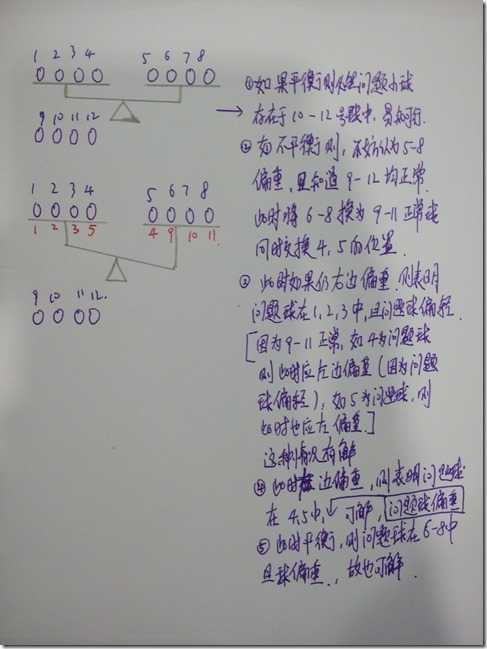 1 2 3 4
5 6 7 8
0 0 0 0
0 0 0 0
9 10 11 12
0 0 0 0
1 2 3 4
5 6 7 8
0 0 0 0
0 0 0 0
1 2 3 5
4 9 10 11
9 10 11 12.
0 0 0 0
①如果平衡则 问题小球
存在于10-12号球中,易知可行.
②如不平衡则,不妨认为5-8
偏重,且知道9-12均正常.
此时将6-8换为9-11正常球
同时交换4,5的位置.
③此时如果仍右边偏重.则表明
问题球在1,2,3中,且问题球偏轻.
[因为9-11正常,如4为问题球
则此时应左边偏重(因为问题
球偏轻),如5为问题球,则
此时也应左偏重.]
这种情况有解
④此时 边偏重,则表明问题球
在4,5中, 可解,问题球偏重
⑤此时平衡,则问题球在6-8中
且球偏重,故也可解.